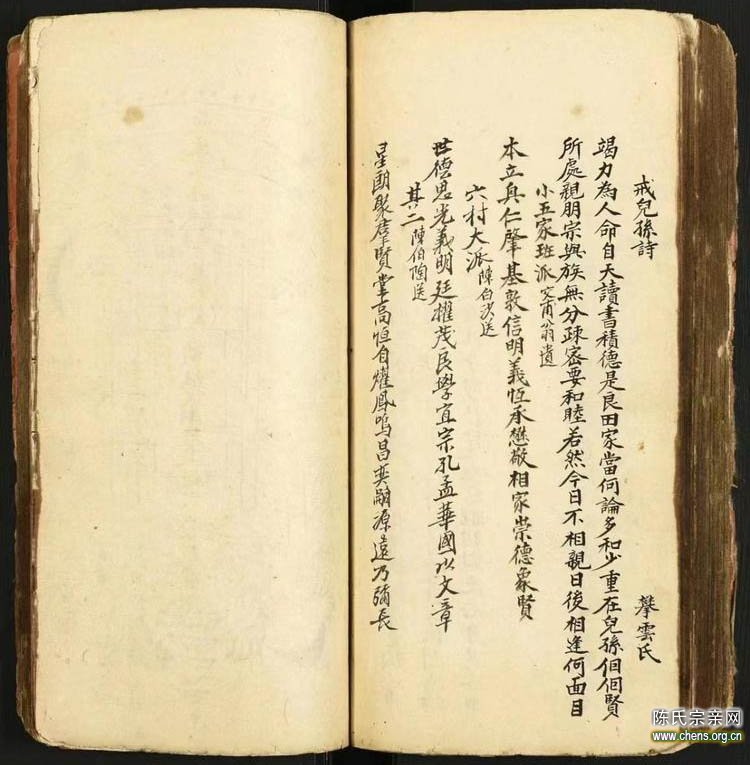 戒兒孫詩 攀雲氏
竭力為人命自天讀書積德是良田家當何論多和少重在兒孫個個賢
所處親朋宗與族無分疎密要和睦若然今日不相親日後相逢何面目
小五家班派 文甫翁遺
本立興仁肇基敦信明義恆承懋敬相家崇德象賢
六村大派 陳伯次送
世德思光義明廷擢茂良學宜宗孔孟華國以文章
其二 陳伯陶送
星朗聚羣賢堂高恒自燿鳳鳴昌奕嗣源遠乃彌長
陈氏宗亲网
www.chens.org.cn